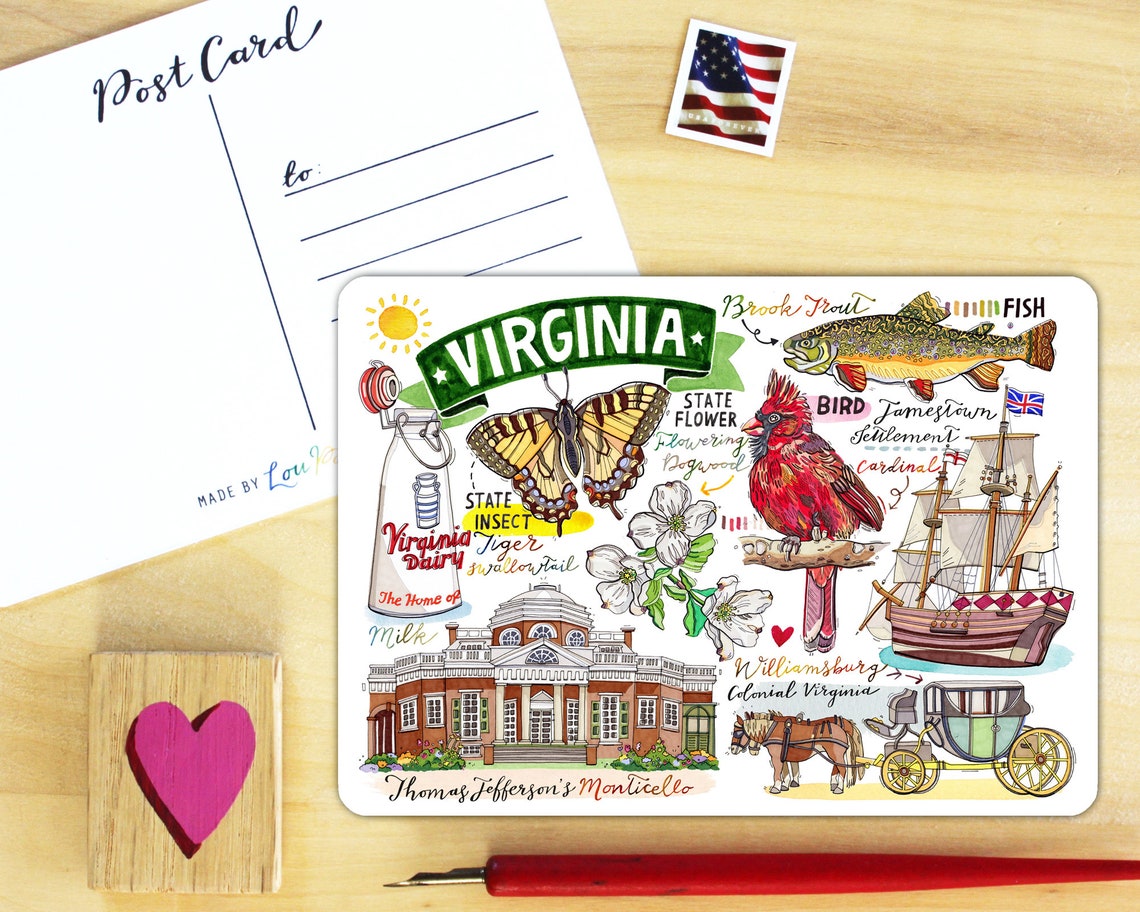 Post Card
to:
MADE BY Lou
USA FOREVER
VIRGINIA
Brook Trout
FISH
STATE
FLOWER
Flowering
Dogwood
BIRD
Jamestown
Settlement
Cardinal
STATE
INSECT
Tiger
swallowtail
Virginia
Dairy
The Home of
Milk
Williamsburg
Colonial Virginia
Thomas Jefferson's Monticello